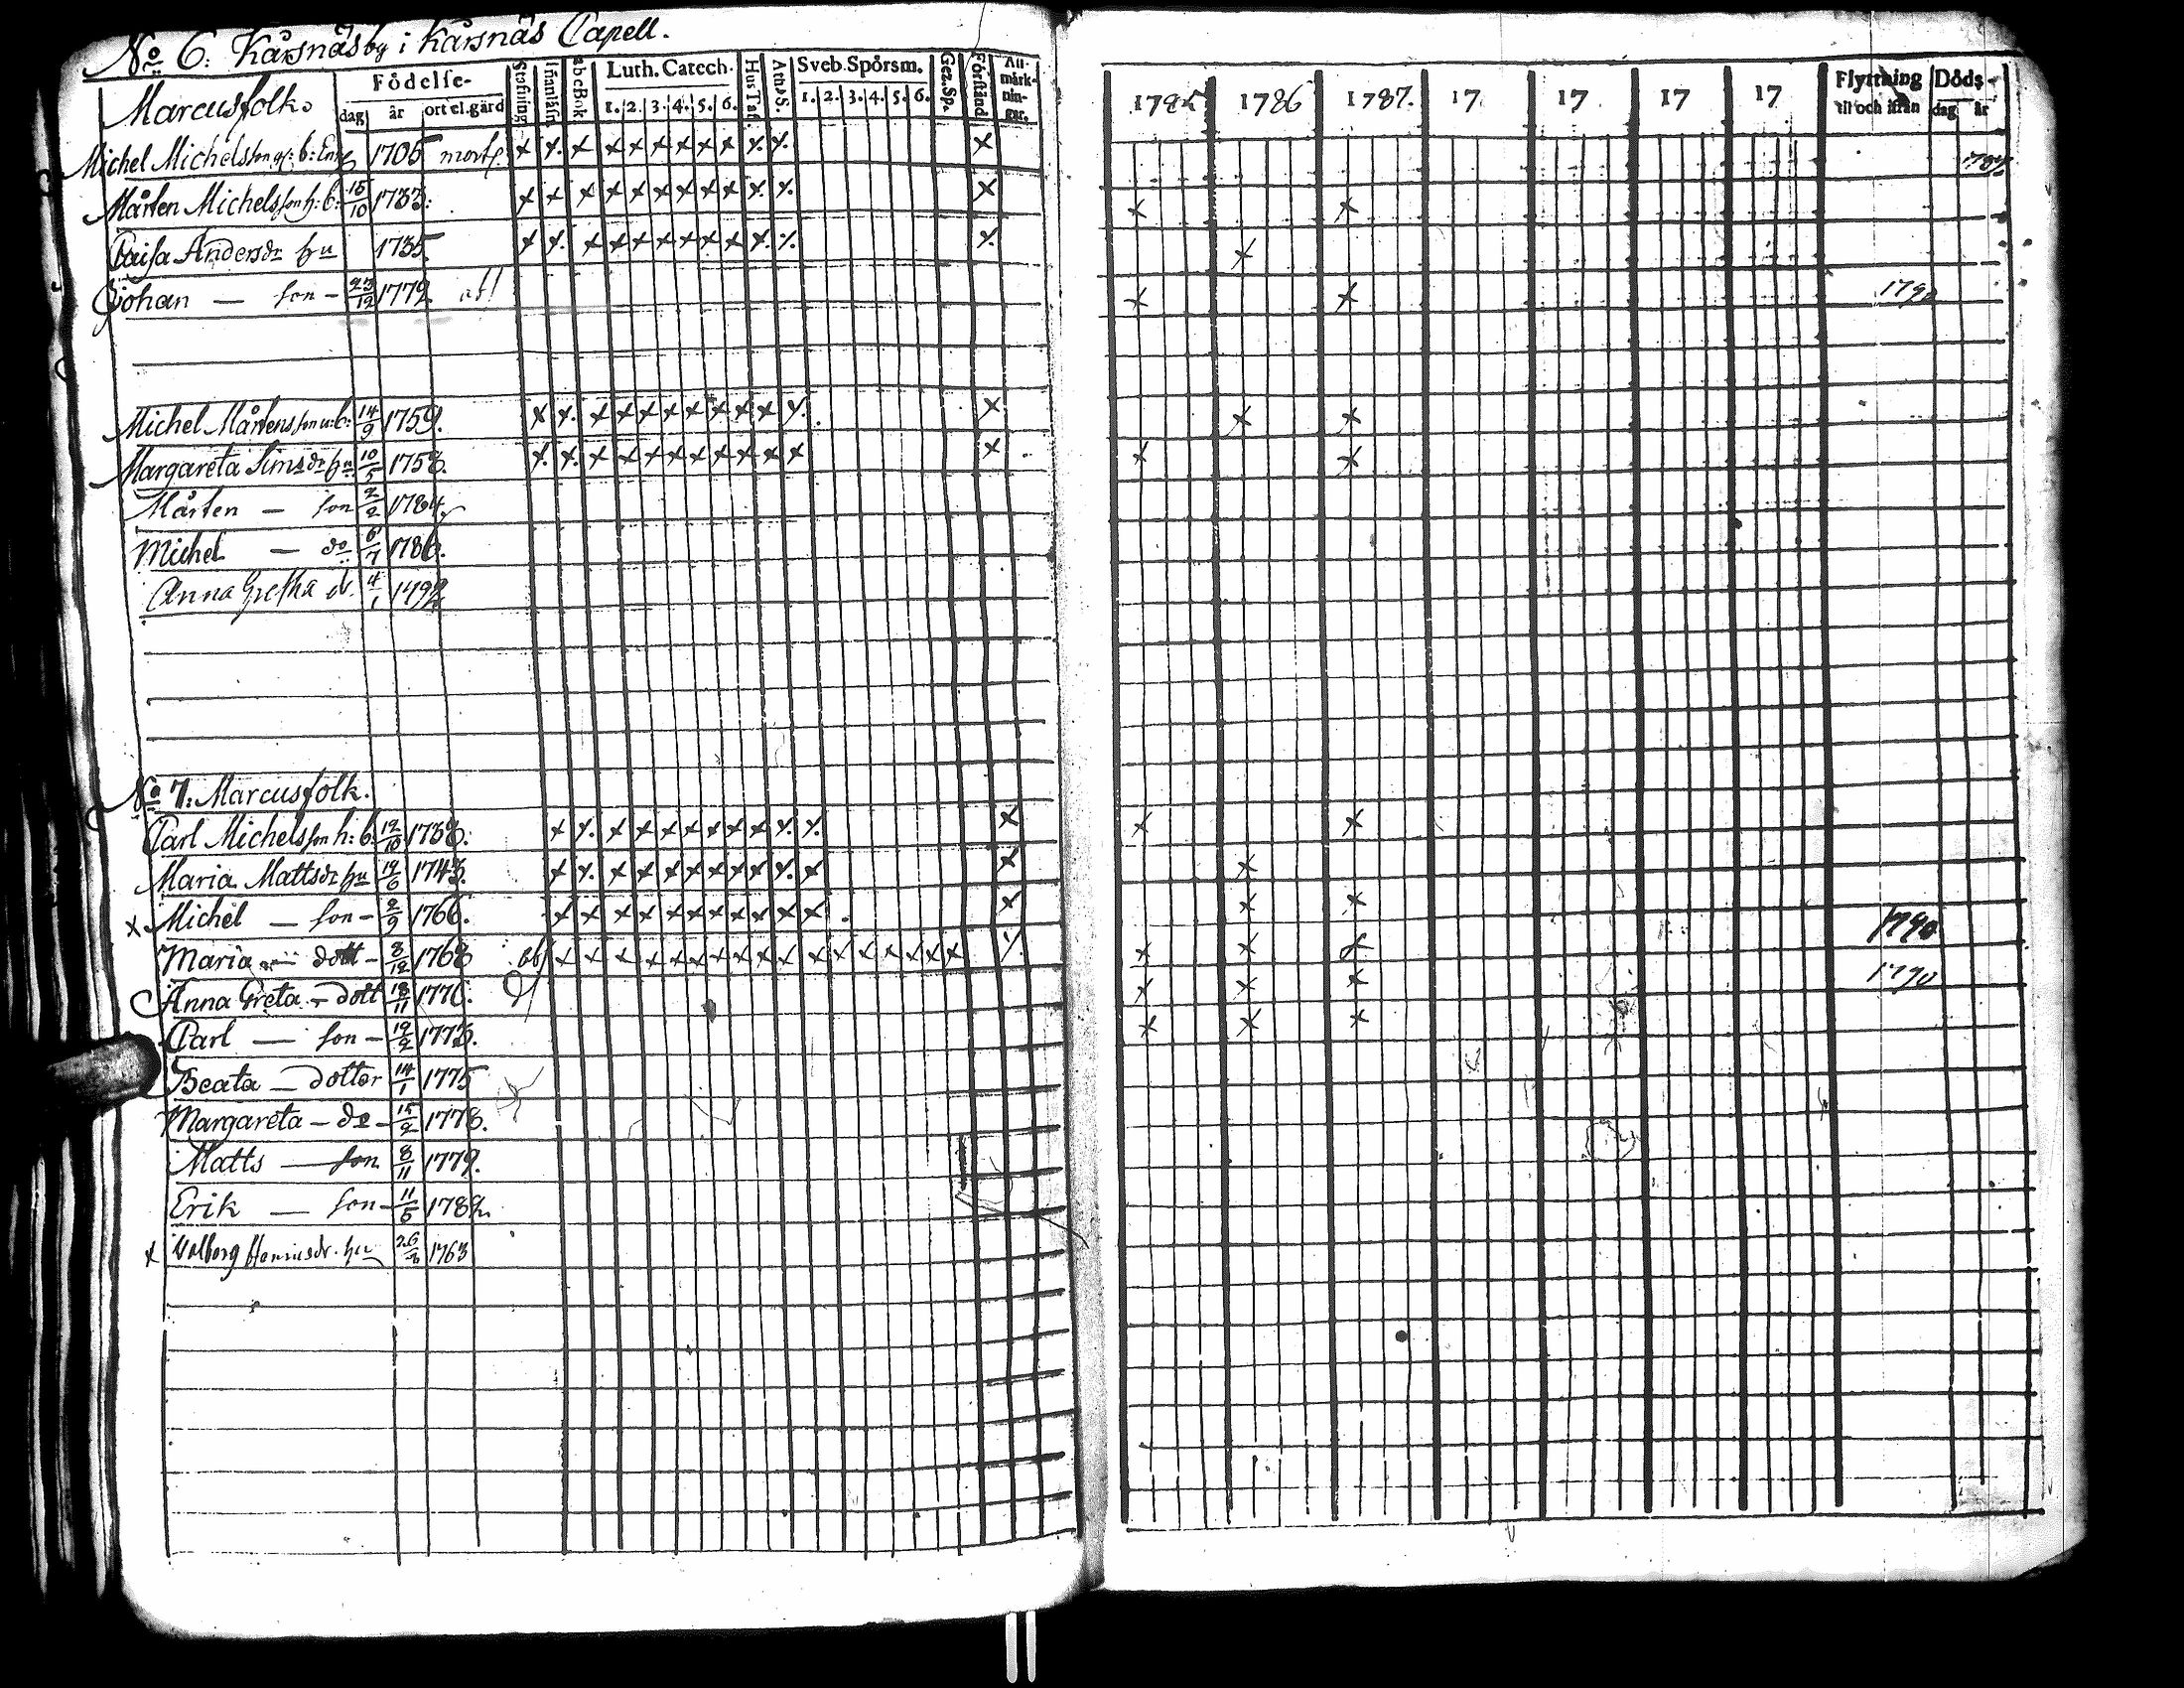 No 6. Kårsnäs by i Kårsnäs Capell.
Marcusfolk.
Födelse-
dag år ort el. gård
Stafning
Innanläsn
abcBok
Luth. Catech.
1. 2. 3. 4. 5. 6.
Hus Taf.
Ath. S.
Sveb. Spörsm.
1. 2. 3. 4. 5. 6.
Gez. Sp.
Förstånd
An-märk-nin-gar.
1785 1786 1787. 17 17 17 17
Flyttning til och ifrån
Döds-
dag år
Michel Michelsson b: Enk 1705 mort. x ٪ x x x x x x x ٪ ٪ x
Mårten Michelsson h: b: 15/10 1733: x x x x x x x x x ٪ ٪ x x x
Caisa Andersdr hu 1735 x ٪ x x x x x x x ٪ ٪ ٪ x
Johan — son - 23/12 1772 abs x x 1790
Michel Mårtensson u: b: 14/9 1759. x ٪ x x x x x x x x ٪ x x x
Margareta Simsdr hu 10/5 1758. ٪ ٪ x x x x x x x x x x x x
Mårten — son 2/2 1784
Michel — do 6/7 1786.
Anna Gretha d. 4/1 1792
No 7: Marcusfolk.
Carl Michelsson h: b. 12/10 1738: x ٪ x x x x x x x ٪ ٪ x x x
Maria Mattsdr hu 12/6 1743. x ٪ x x x x x x x ٪ x x x
x Michel — son - 2/9 1766. x x x x x x x x x x x x x x
Maria — dott - 8/12 1768 abs x x x x x x x x x x x x x x x x x ٪ x x x 1790
Anna Greta - dott 18/11 1770. x x x 1790
Carl — son - 12/2 1773. x x x
Beata — dotter 14/1 1775
Margareta - do - 15/2 1778.
Matts — son 8/11 1779.
Erik — son - 11/5 1782.
x Valborg Henricsdr. hu 26/2 1763